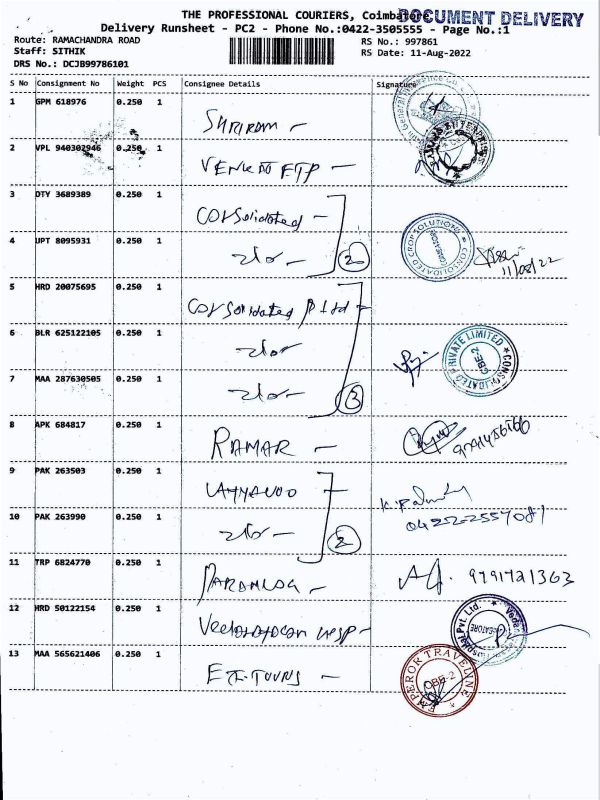 THE PROFESSIONAL COURIERS, Coimbatore
DOCUMENT DELIVERY
Delivery Runsheet - PC2 - Phone No.:0422-3505555 - Page No.:1
Route: RAMACHANDRA ROAD
RS No.: 997861
Staff: SITHIK
RS Date: 11-Aug-2022
DRS No.: DCJB99786101
S No Consignment No Weight PCS Consignee Details Signature
1 GPM 618976 0.250 1
SHRIRAM -
2 VPL 940302946 0.250 1
3 DTY 3689389 0.250 1
Consolidated -
4 UPT 8095931 0.250 1
2
CONSOLIDATED CROP SOLUTIONS
11/08/22
5 HRD 20075695 0.250 1
Consolidated P Ltd -
6 BLR 625122105 0.250 1
CONSOLIDATED PRIVATE LIMITED
CBE-2
7 MAA 287630505 0.250 1
3
8 APK 684817 0.250 1
RAMAR -
9 PAK 263503 0.250 1
10 PAK 263990 0.250 1
2
11 TRP 6824770 0.250 1
9791721363
12 HRD 50122154 0.250 1
Hospital Pvt. Ltd.
13 MAA 565621406 0.250 1
EMPEROR TRAVELINE
CBE-2